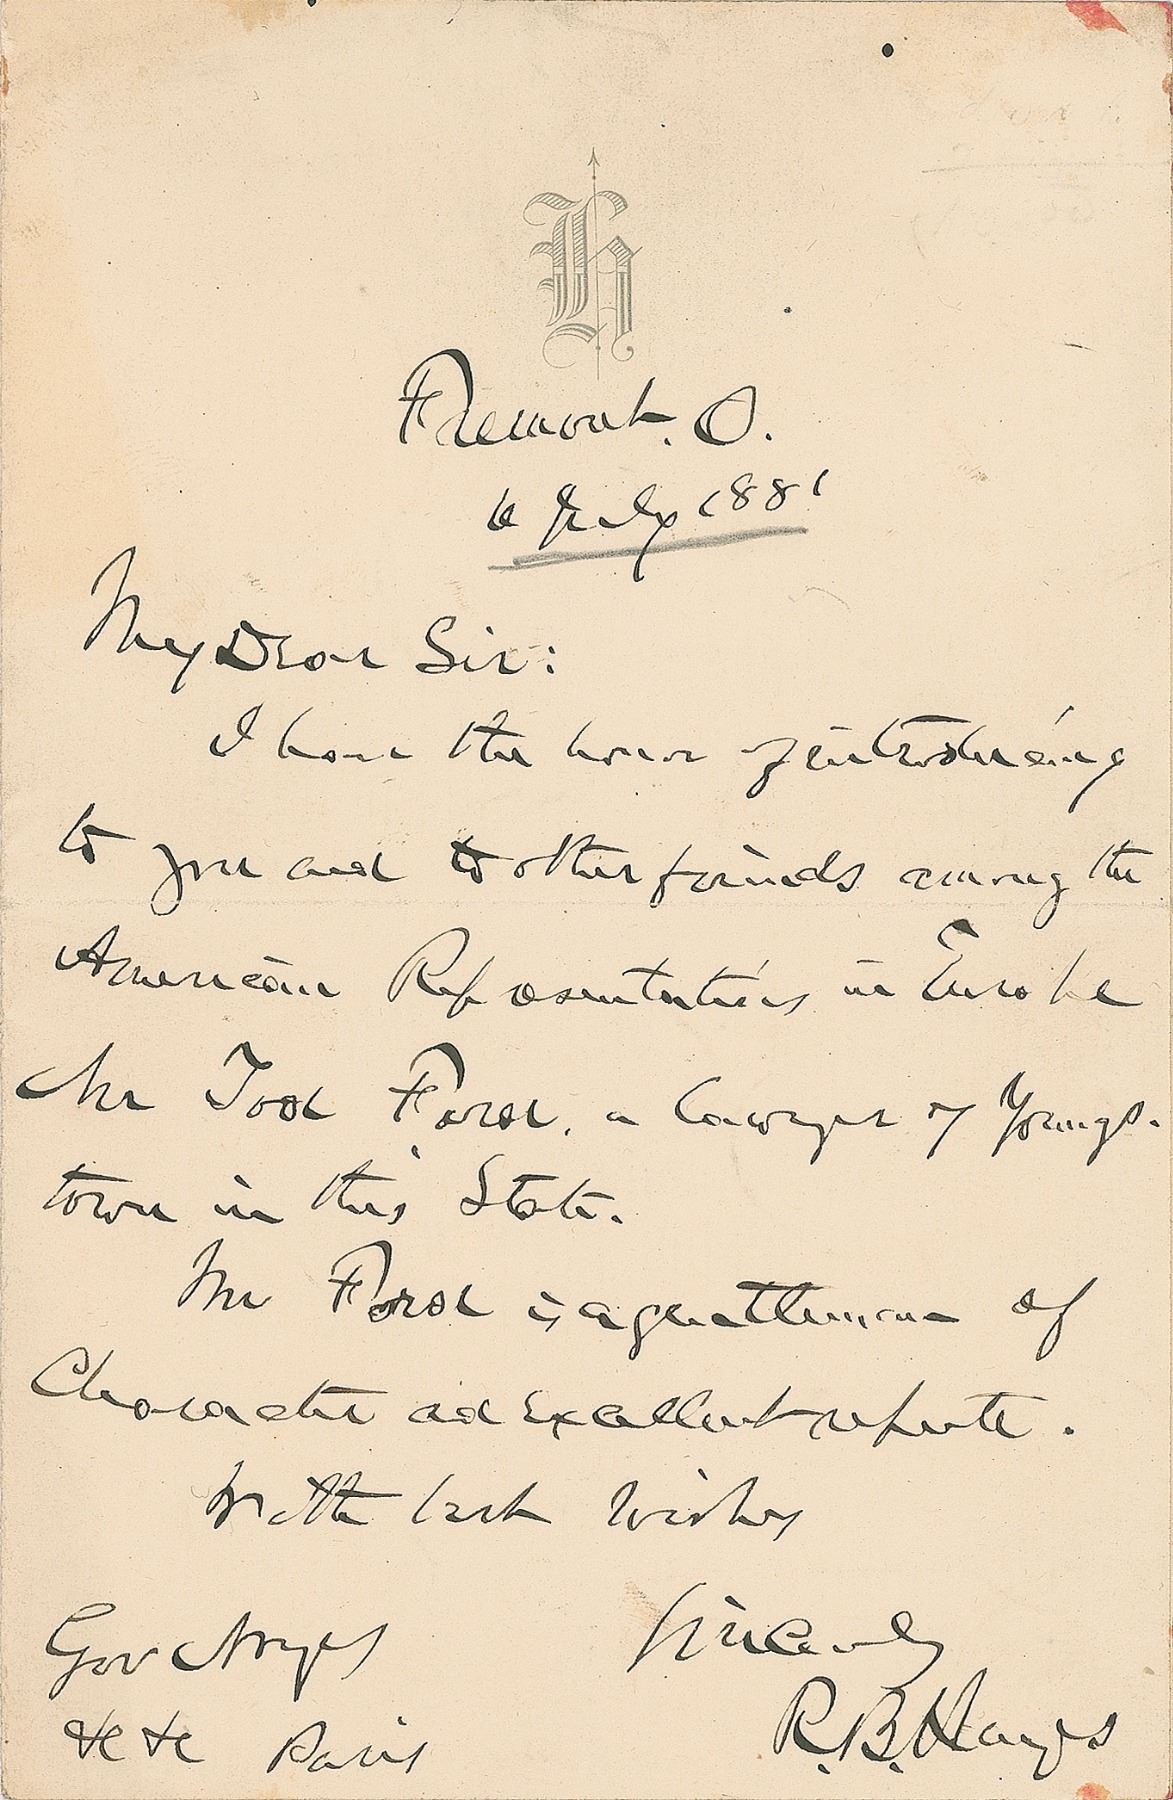 H
Fremont. O.
6 July 1881
My Dear Sir:
I have the honor of introducing
to you and to other friends among the
American Representatives in Europe
Mr Tod Ford, a lawyer of Youngs-
town in this State.
Mr Ford is a gentleman of
Character and Excellent repute.
With best wishes
Sincerely
R. B. Hayes
Gov Noyes
&c &c Paris